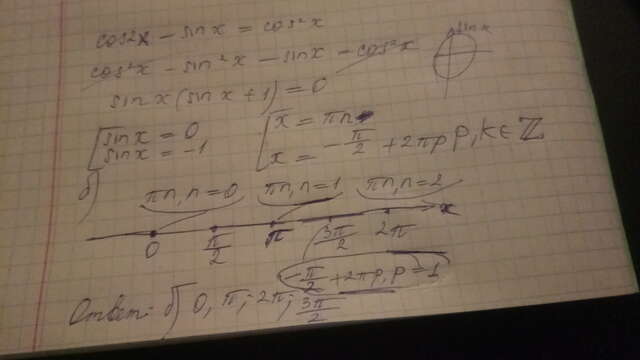 cos2x - sin x = cos²x
cos²x - sin²x - sin x - cos²x sin x
sin x (sin x + 1) = 0
[ sin x = 0 [ x = πn
sin x = -1 x = -π/2 + 2πp P, k ∈ ℤ
б) πn, n = 0 πn, n = 1 πn, n = 2
0 π/2 π 3π/2 2π x
-π/2 + 2πp, p = 1
Ответ: б) 0, π; 2π; 3π/2